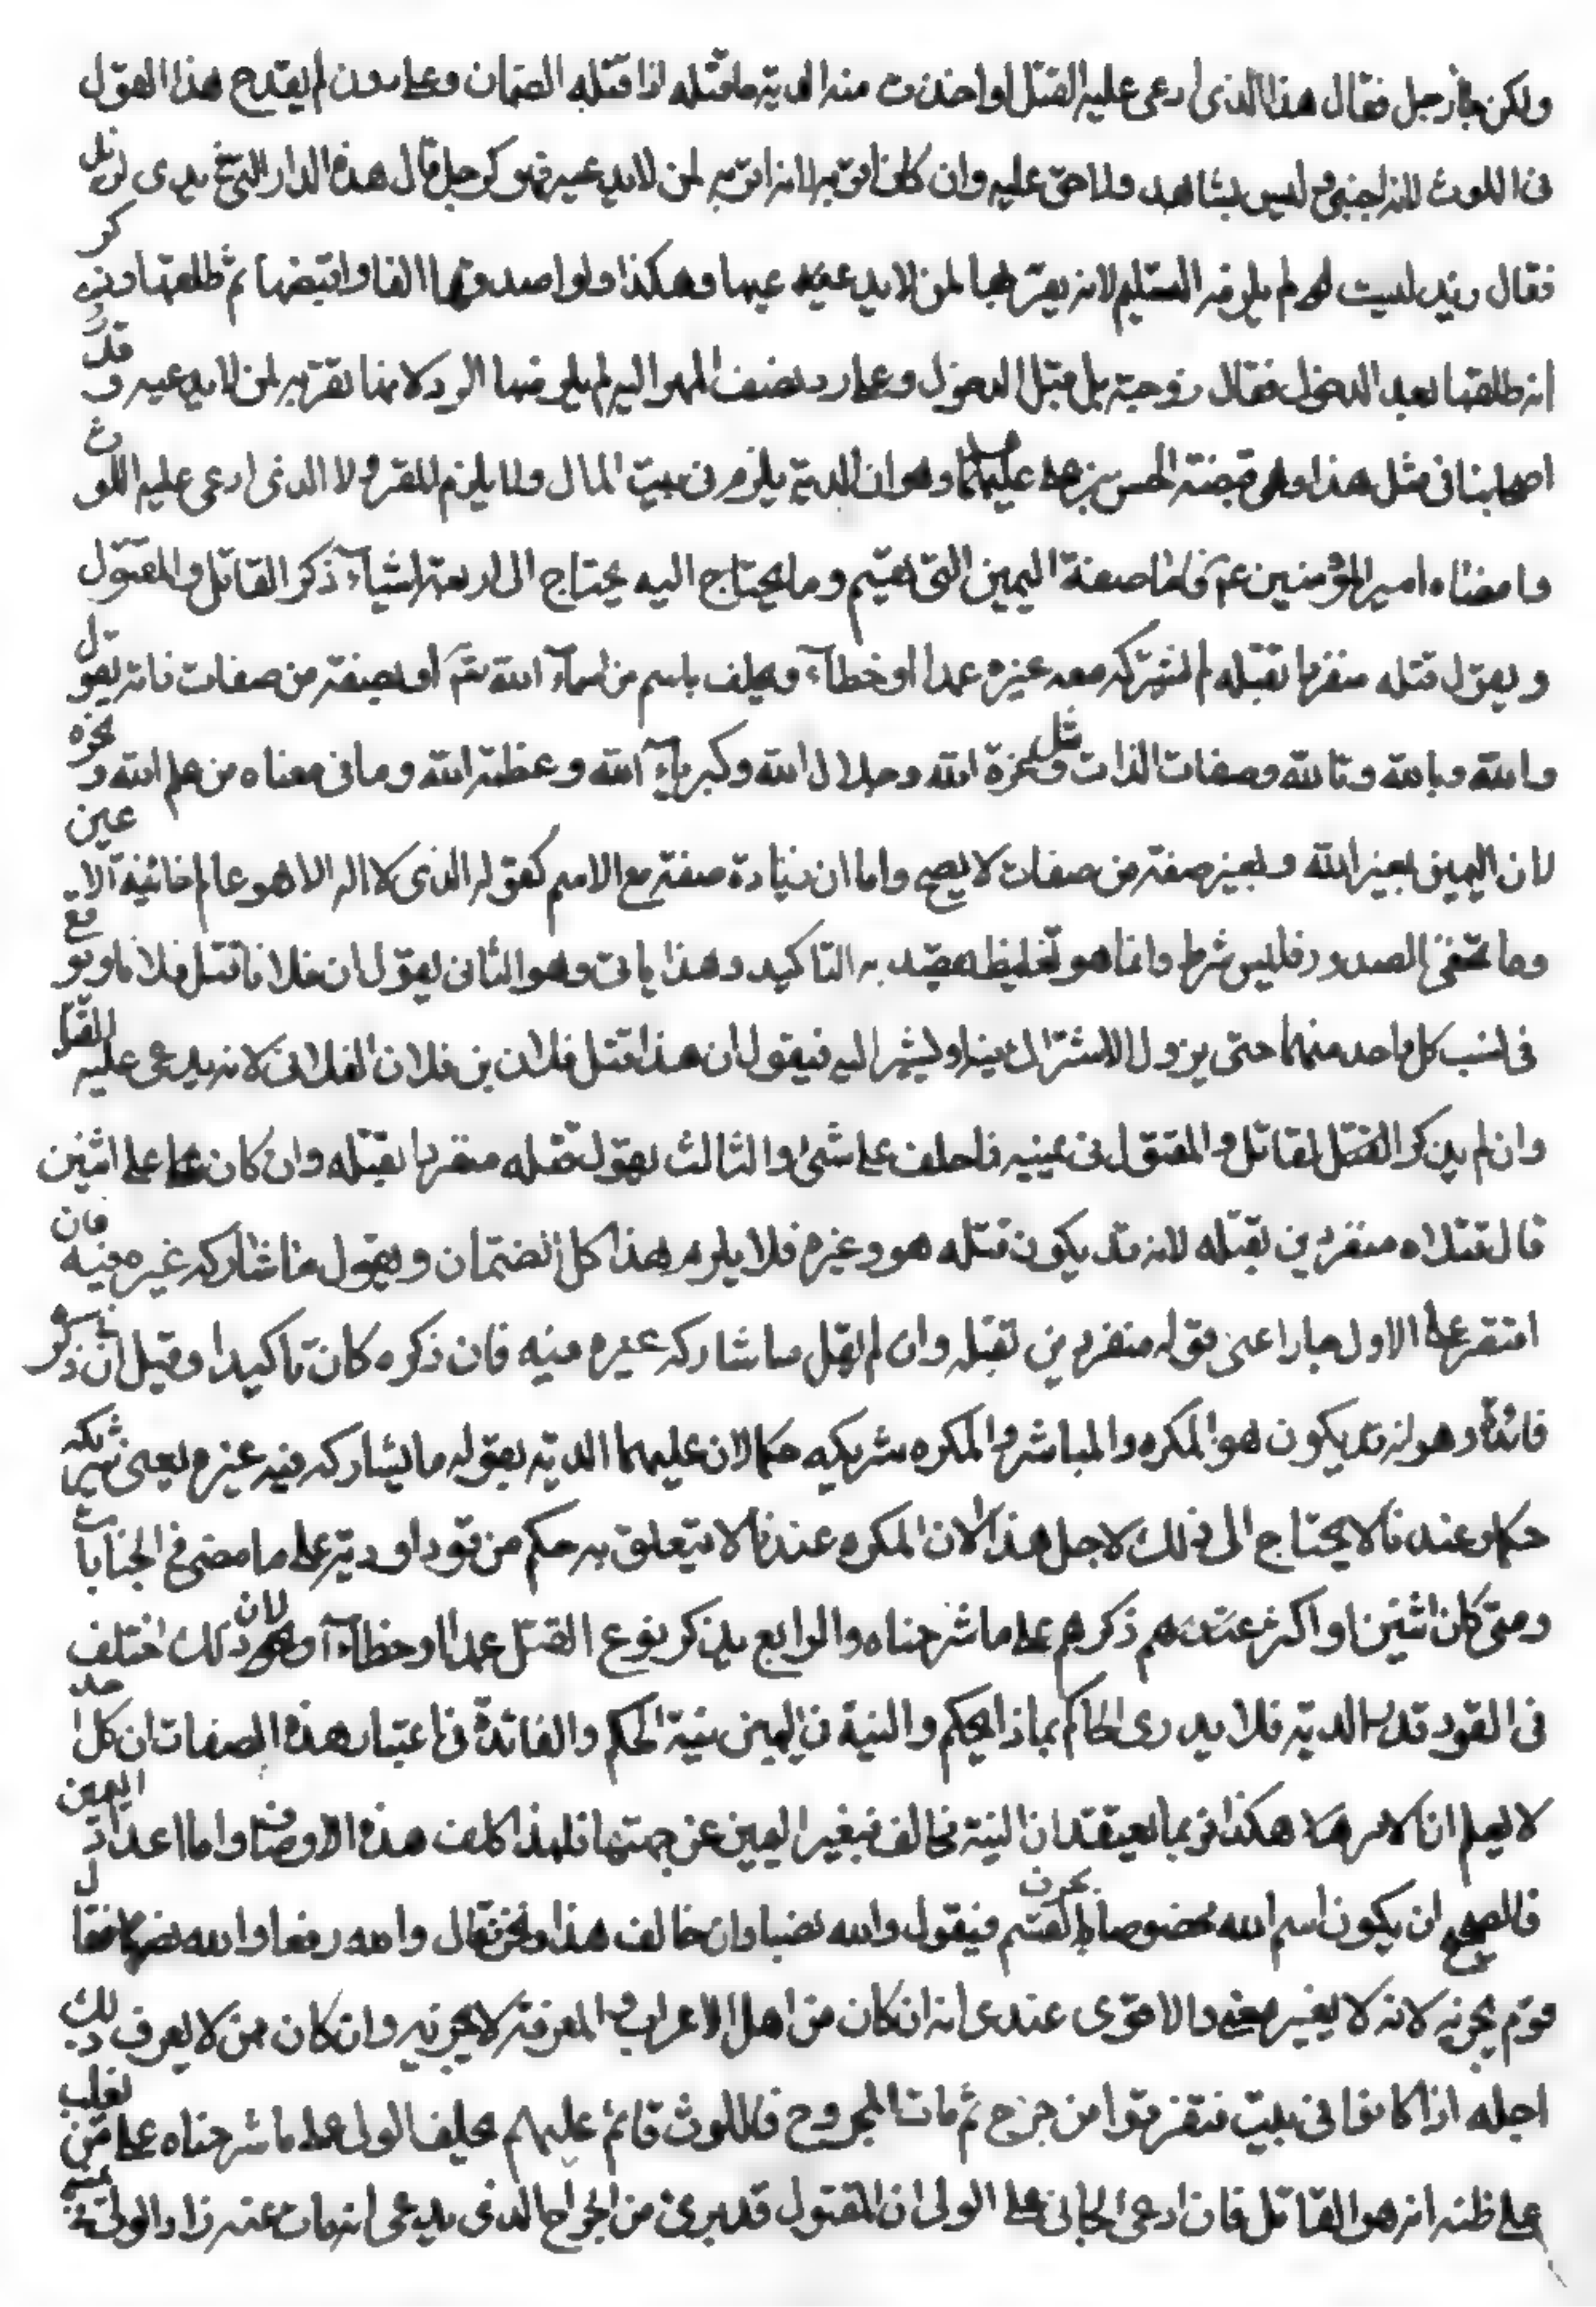 ولكن جاء رجل فقال هذا الذى ادعى عليه القتل او اخذت منه الدية ما قتله انا قتلته الضمان وعلى دون لم يقدح هذا القول
فى اللوث لانه اجنبى وليس بشاهد ولا حق عليه وان كان اقر به لانه اقر به لمن لا يدعيه فهو كرجل قال هذه الدار التى فى يدى لزيد
فقال زيد ليست لى لم يلزمه التسليم لانه يقر بها لمن لا يدعيها وهكذا ولو اصدقها الفا واقبضها ثم طلقها وذكر
انه طلقها بعد الدخول فقال زوجته بل قبل الدخول وعلى رد نصف المهر اليه لم يلزمها الرد لانها تقر به لمن لا يدعيه وقد روى
اصحابنا فى مثل هذا وهى قضية الحسن بن على عليهما وهو ان الدية يلزم فى بيت المال ولا يلزم للمقر ولا الذى ادعى عليه اللوث
وامضاه امير المؤمنين ع فاما صفة اليمين التى يقسم وما يحتاج اليه يحتاج الى اربعة اشياء ذكر القاتل والمقتول
ويقول قتله منفردا بقتله لم يشركه معه غيره عمدا او خطاء ويحلف باسم من اسماء الله تعالى او بصفة من صفات ذاته يقول
والله وبالله وتالله وصفات الذات مثل وعزة الله وجلال الله وكبرياء الله وعظمة الله وما فى معناه من علم الله ونحوه
لان اليمين بغير الله وبغير صفة من صفات لا يصح واما ان زيادة صفة مع الاسم كقوله الذى لا اله الا هو عالم خائنة الاعين
وما تخفى الصدور فليس شرط وانما هو تغليظ يقصد به التاكيد وهذا ياتى وهو الثانى يقول ان فلانا قتل فلانا ويرفع
فى نسب كل واحد منهما حتى يزول الاشتراك بينه او يشير اليه فيقول ان هذا قتل فلان بن فلان الفلانى لانه يدعى عليه القتل
وان لم يذكر القتل لقاتل والمقتول فى يمينه فاحلف على شىء والثالث يقول قتله منفردا بقتله وان كان على اثنين
قال قتلاه منفردين بقتله لانه قد يكون قتله هو وغيره فلا يلزمه هذا كل الضمان ويقول ما شاركه غيره فيه فان
اقتصر على الاول جاز اعنى قوله منفردين بقتله وان لم يقل ما شاركه غيره فيه فان ذكره كان تاكيدا وقيل ان ذكره
فائدة وهو انه قد يكون هو المكره والمباشر والمكره شريكه حكما لان عليهما الدية بقوله ما يشاركه فيه غيره يعنى شركة
حكما وعندنا لا يحتاج الى ذلك لاجل هذا لان المكره عندنا لا يتعلق به حكم من قود او دية على ما مضى فى الجنايات
ومتى كان اثنين او اكثر ذكرهم على ما شرحناه والرابع يذكر نوع القتل عمدا او خطاء لان ذلك اختلف
فى القود قدر الدية فلا يدرى الحاكم بماذا يحكم والنية فى اليمين بنية الحاكم والفائدة فى اعتبار هذه الصفات ان كل احد
لا يعلم ان الامر هكذا فربما يعتقد ان النية تخالف فيغير اليمين عن جهتها فلهذا كلف هذه الاوصاف واما اعداد اليمين
فالصحيح ان يكون اسم الله مخفوضا بحرف القسم فيقول والله خفضا وان خالف هذا ولحن فقال والله رفعا والله نصبا فقال
قوم يجزيه لانه لا يغير معنى والاقوى عندى انه ان كان من اهل الاعراب والمعرفة لا يجزيه وان كان من لا يعرف ذلك
اجزاه اذا كانوا فى بيت فتفرقوا من جرح ثم مات المجروح فاللوث قائم عليهم يحلف الولى على ما شرحناه على من يغلب
على ظنه انه هو القاتل فان ادعى الجانى على الولى ان المقتول قد برئ من الجراح الذى يدعى انه مات عنه زاد الولى